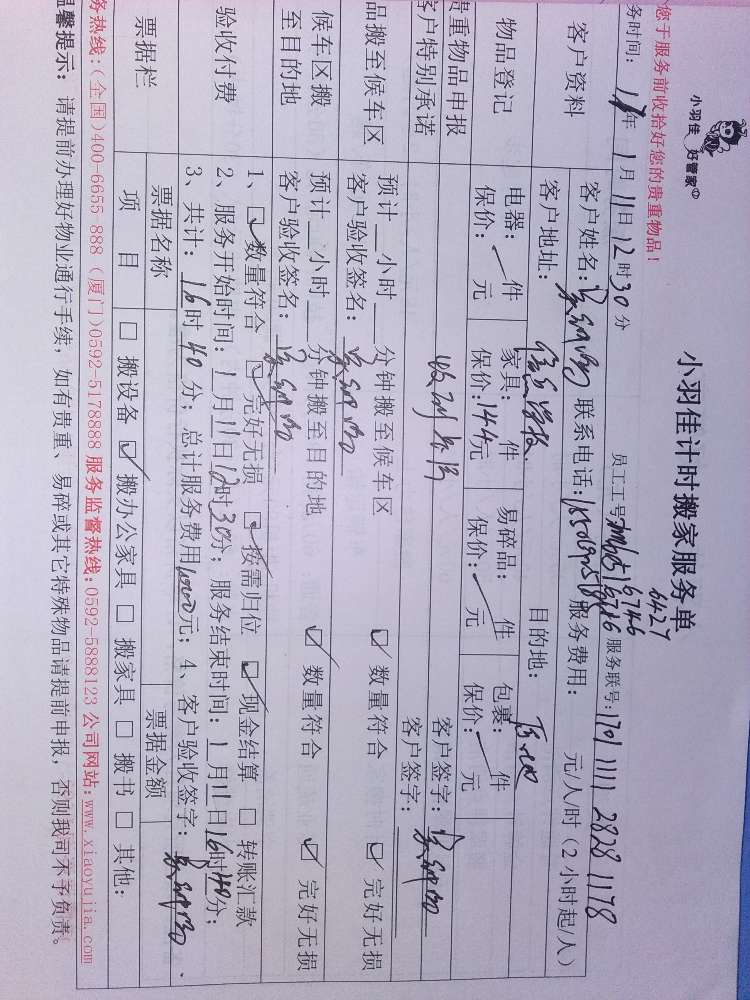 小羽佳 好管家
小羽佳计时搬家服务单
您于服务前收拾好您的贵重物品！
6427
6746
务时间： 年 1 月 11 日 12 时 30 分 员工工号 服务联号：1701 1111 2828 1178
客户资料 客户姓名： 联系电话： 服务费用： 元/人/时（2小时起/人）
客户地址： 目的地：
物品登记 电器： 件 家具： 件 易碎品： 件 包裹： 件
保价： 元 保价：144元 保价： 元 保价： 元
贵重物品申报 客户签字：
客户特别承诺 客户签字：
品搬至候车区 预计 小时 分钟搬至候车区 ☑ 数量符合 ☑ 完好无损
客户验收签名：
候车区搬至目的地 预计 小时 分钟搬至目的地 ☑ 数量符合 ☑ 完好无损
客户验收签名：
验收付费 1、☑ 数量符合 ☑ 完好无损 ☑ 按需归位 ☑ 现金结算 □ 转账汇款
2、服务开始时间：1 月 11 日 12 时 30 分；服务结束时间：1 月 11 日 16 时 40 分；
3、共计：16 时 40 分；总计服务费用 元；4、客户验收签字：
票据栏 票据名称 票据金额
项 目 □ 搬设备 ☑ 搬办公家具 □ 搬家具 □ 搬书 □ 其他：
务热线：(全国)400-6655 888（厦门)0592-5178888 服务监督热线：0592-5888123 公司网站：www.xiaoyujia.com
温馨提示：请提前办理好物业通行手续，如有贵重、易碎或其它特殊物品请提前申报，否则我司不予负责。